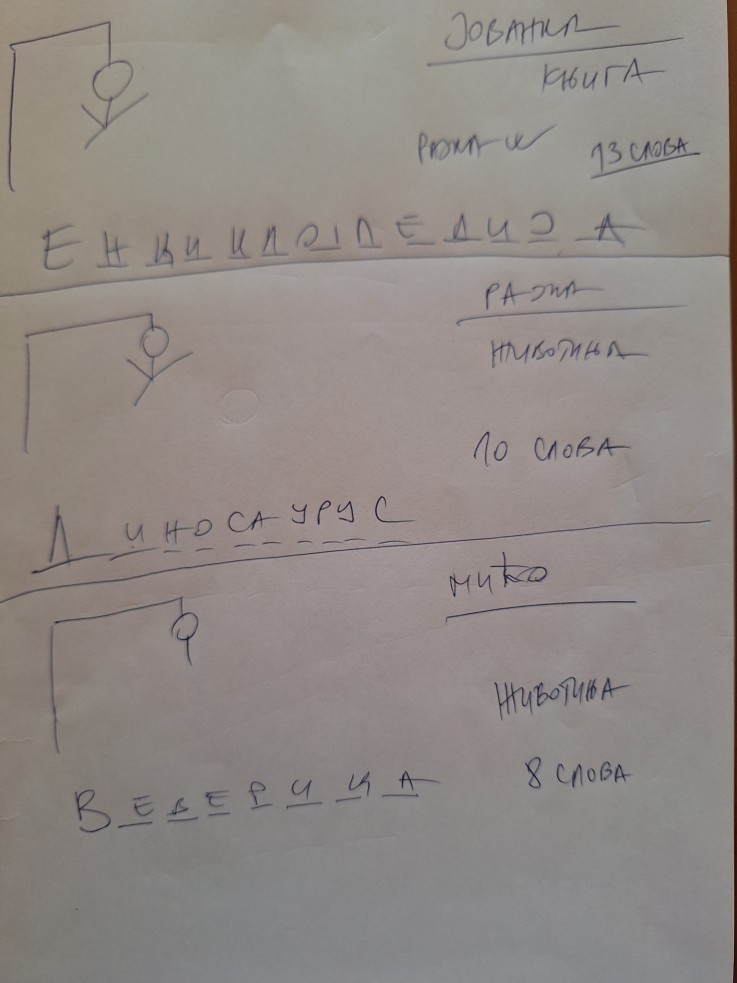 ЈОВАНКА
КЊИГА
РАЈНА
13 СЛОВА
ЕНЦИКЛОПЕДИЈА
РАЈНА
ЖИВОТИЊА
10 СЛОВА
ДИНОСАУРУС
МИЋО
ЖИВОТИЊА
8 СЛОВА
ВЕВЕРИЦА